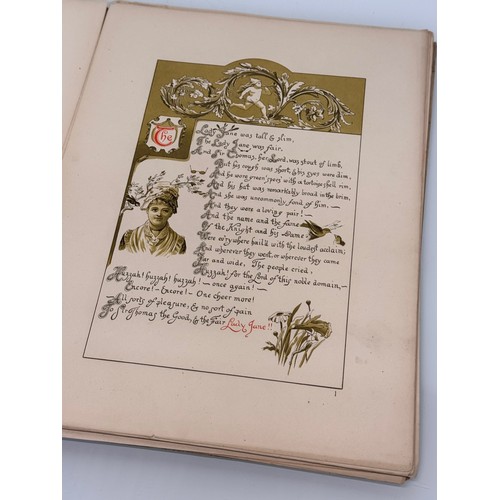 The
Lady Jane was tall & slim,
The Lady Jane was fair,
And Sir Thomas, her Lord, was stout of limb,
But his cough was short, & his eyes were dim,
And he wore green "specs" with a tortoise shell rim,
And his hat was remarkably broad in the brim,
And she was uncommonly fond of him —
And they were a loving pair! —
And the name and the fame
Of the Knight and his Dame
Were every where hail'd with the loudest acclaim;
And wherever they went, or wherever they came
Far and wide, The people cried,
Huzzah! for the Lord of this noble domain,—
Huzzah! huzzah! huzzah! — once again! —
Encore! — Encore! — One cheer more!
—All sorts of pleasure, & no sort of pain
To Sir Thomas the Good, & the Fair Lady Jane!!
1